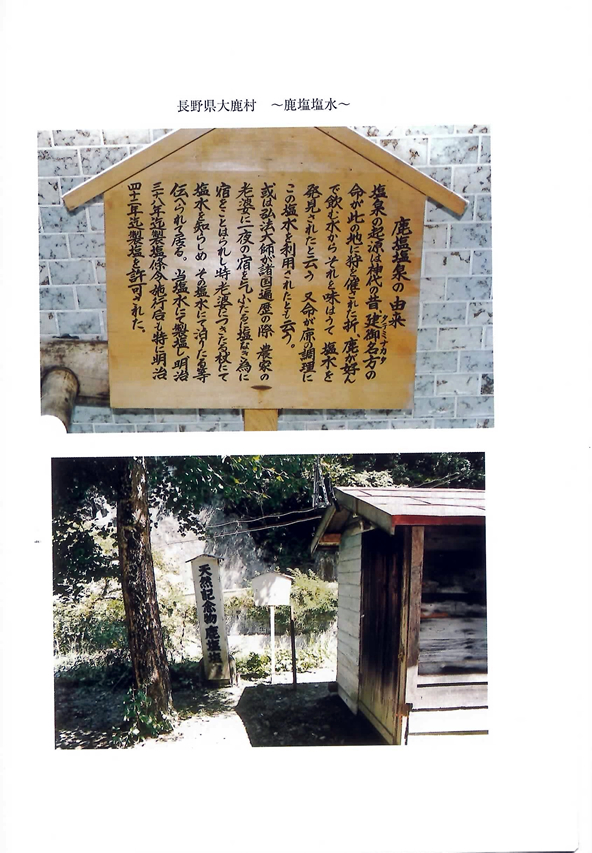 長野県大鹿村　～鹿塩塩水～
鹿塩塩泉の由来
塩泉の起源は神代の昔建御名方の
タテミナカタ
命が此の地に狩を催された折、鹿が好ん
で飲む水からそれを味はうて塩水を
発見されたと云う 又命が鹿の調理に
この塩水を利用されたとも云う。
或は弘法大師が諸国遍歴の際 農家の
老婆に一夜の宿を乞ふたるに塩なき為に
宿をことはられし時老婆につきた杖にて
塩水を知らしめ その塩水にて泊りたる等
伝へられて居る。当塩水にて製塩し明治
三十八年迄製塩保令施行后も特に明治
四十二年迄製塩を許可された。
天然記念物 鹿塩塩